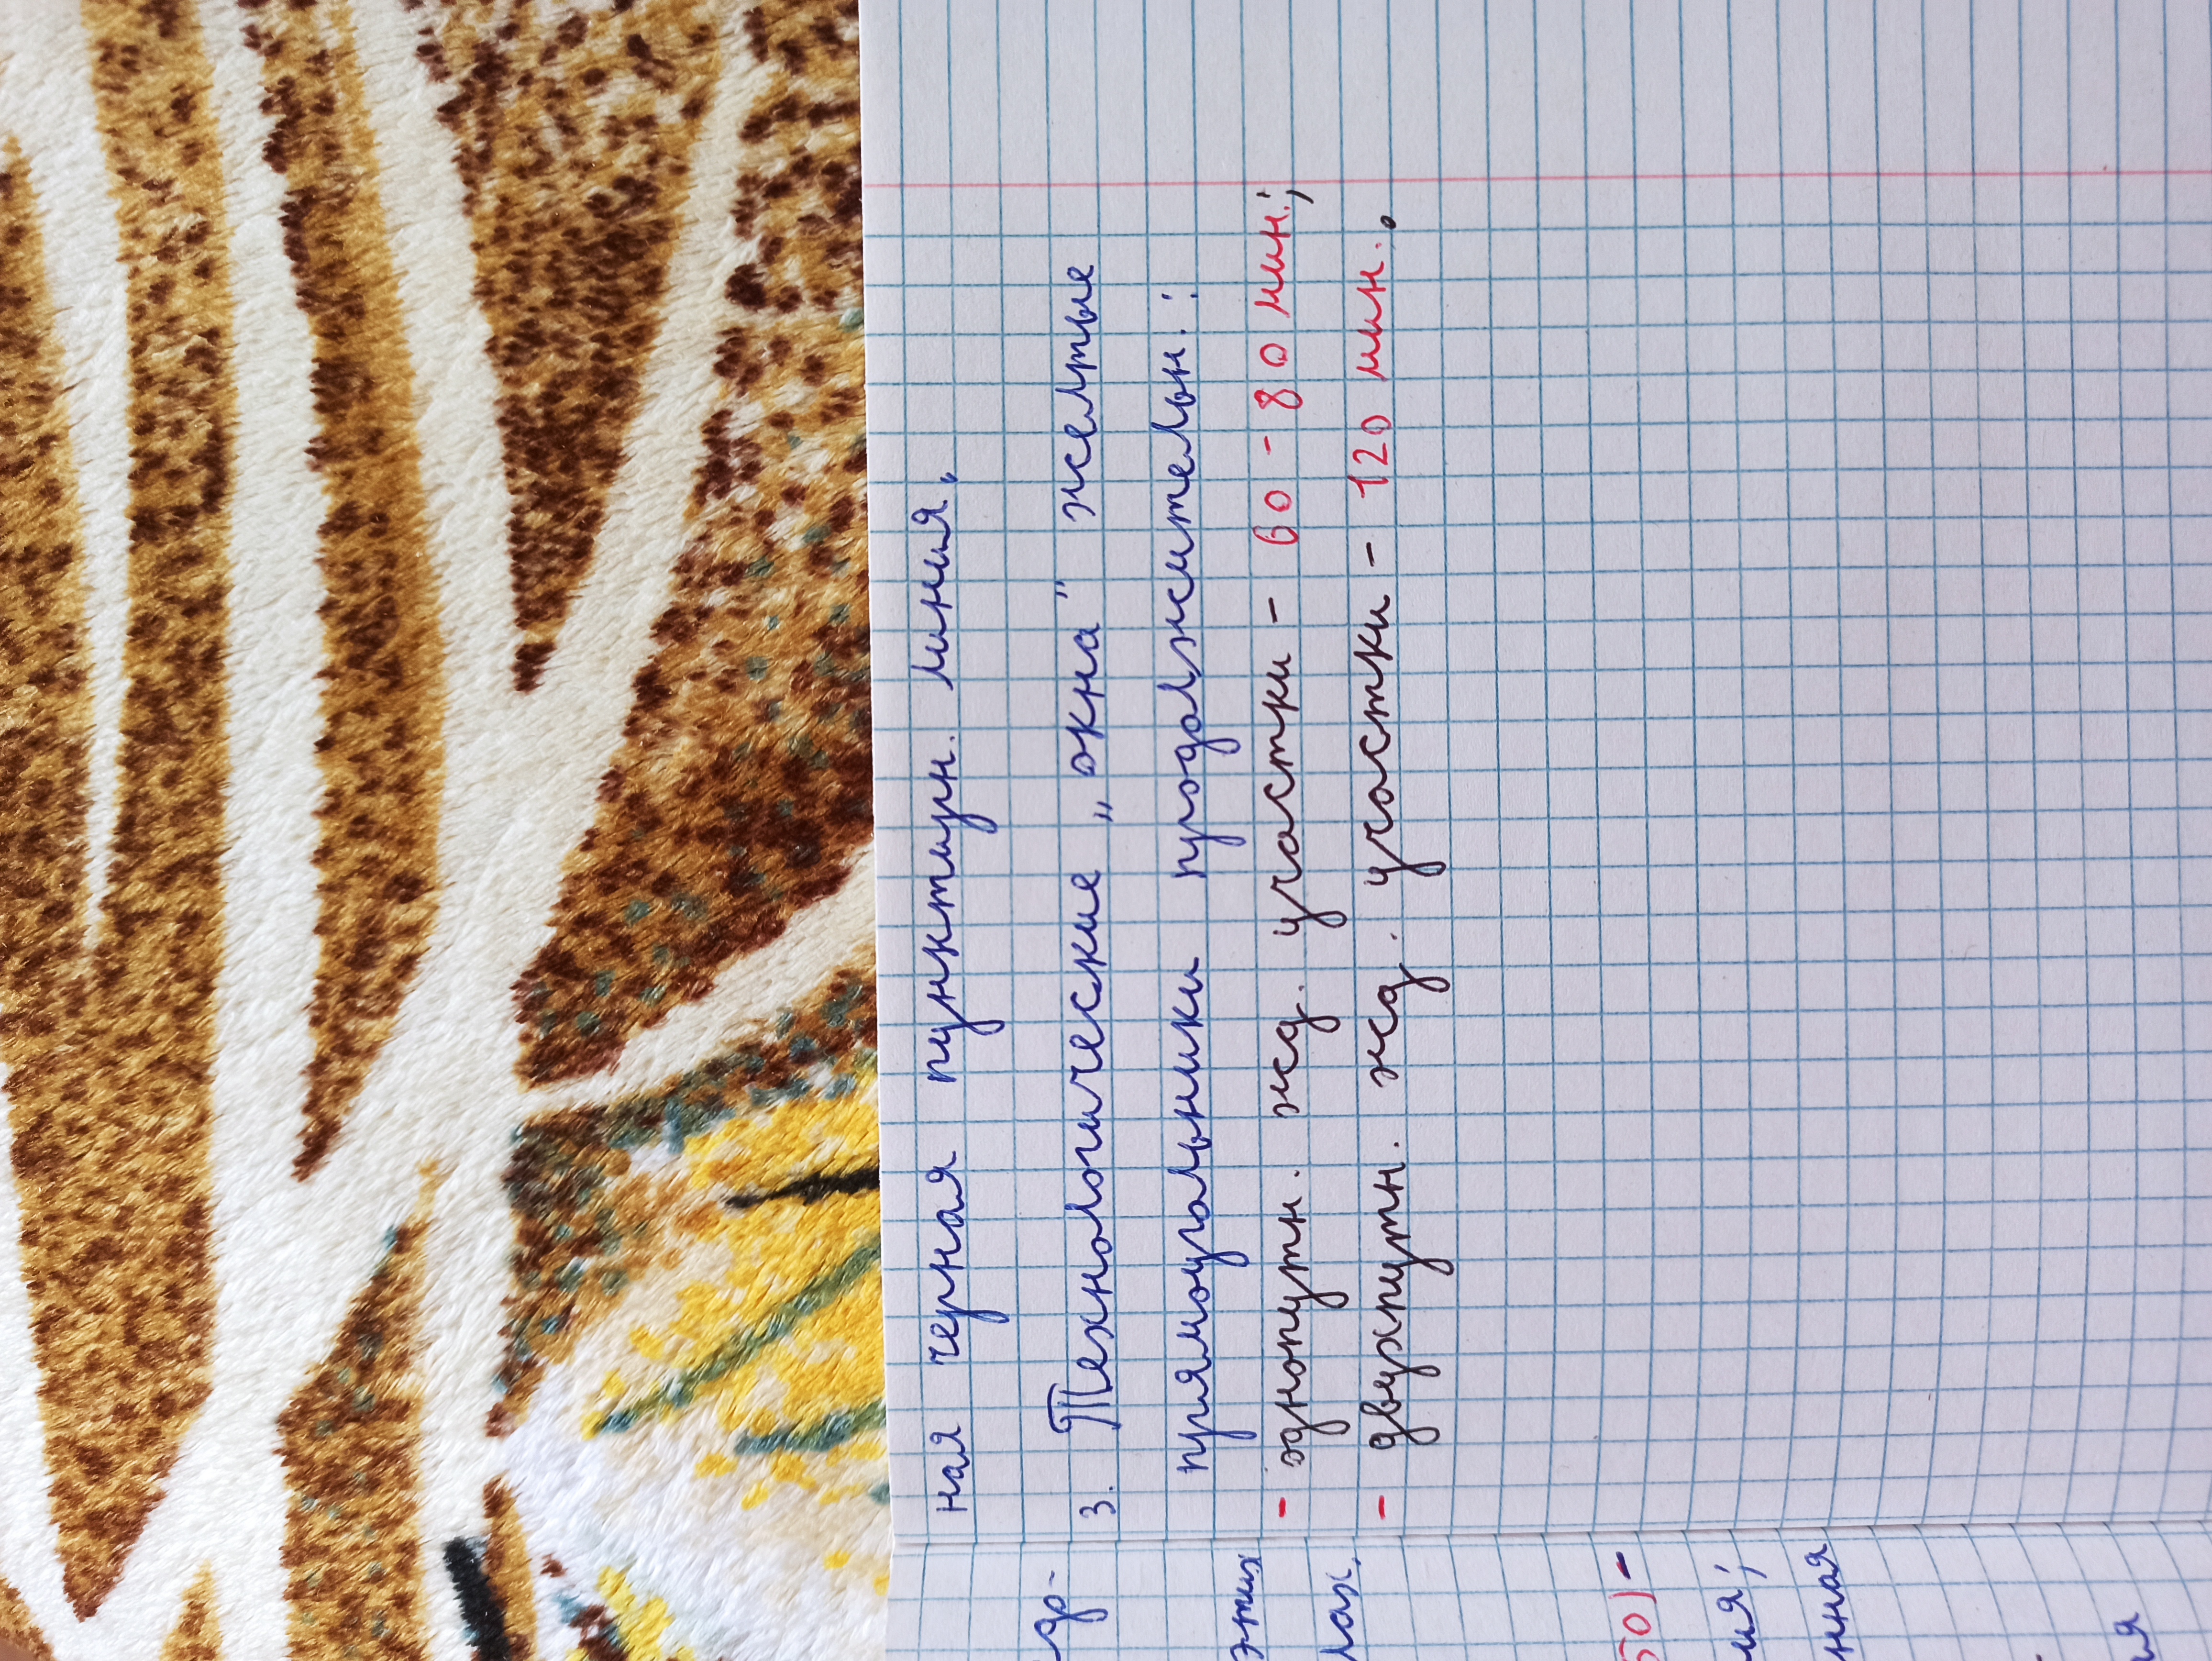 ная черная пунктирн. линия.
3. Технологические „окна" желтые
прямоугольники продолжительн.:
- однопутн. жд. участки - 60 - 80 мин.;
- двухпутн. жд. участки - 120 мин..
этих
лах.
50) -
ия;
нная
ия